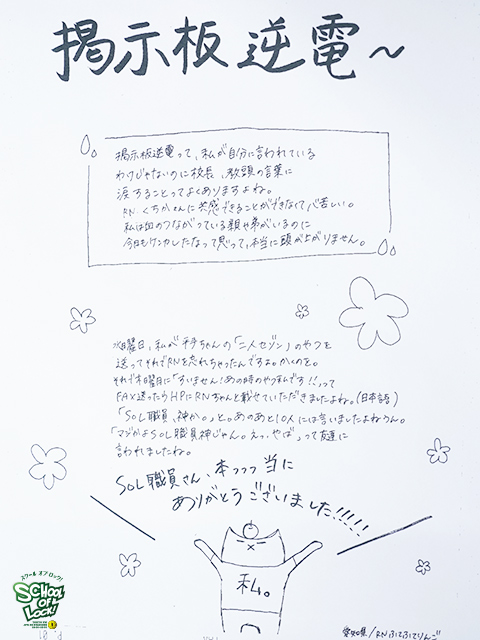 掲示板逆電～
掲示板逆電って、私が自分に言われている
わけじゃないのに校長、教頭の言葉に
涙することってよくありますよね。
RN くちかさんに共感できることができなくて心苦しい。
私は血のつながっている親や弟がいるのに
今日もケンカしたなって思って、本当に頭が上がりません。
水曜日、私が平手ちゃんの「二人セゾン」のやつを
送ってそれでRNを忘れちゃったんですよ。かくのを。
それで木曜日に「すいません！あの時のやつ私です！！って
FAX送ったらHPにRNちゃんと載せていただきましたよね。(日本語)
「SOL職員、神か。」と。あのあと10人には言いましたよねうん。
「マジかよSOL職員神じゃん。えっ、やば」って友達に
言われましたね。
SOL職員さん、本っっっ当に
ありがとうございました!!!!!
私。
スクール オブ ロック!
SCHOOL OF LOCK!
愛知県/RN ふてふてりんご